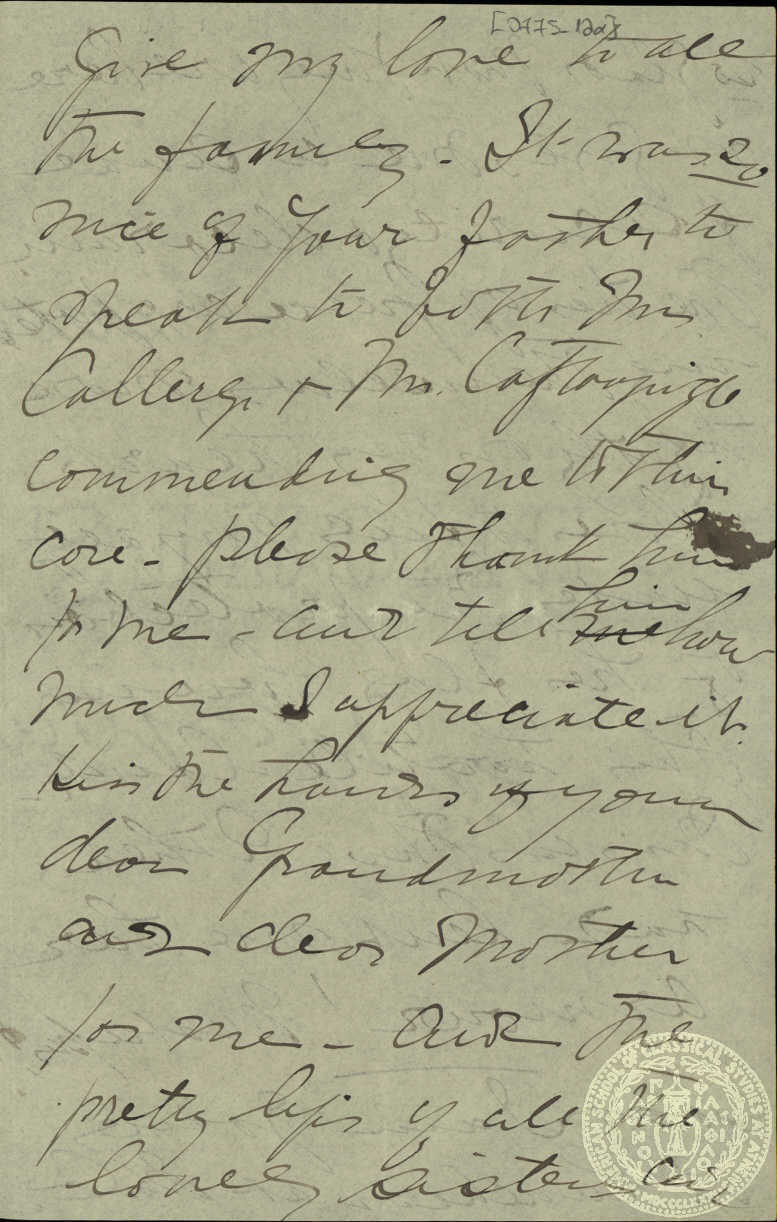 Give my love to all
the family. It was so
nice of your father to
speak to both Mr.
Callergi + Mr.
commending me to their
care - please thank him
for me - and tell me him how
much I appreciate it.
Kiss the hands of your
dear Grandmother
and dear Mother
for me - and the
pretty lips of all the
lovely sisters and
AMERICAN SCHOOL OF CLASSICAL STUDIES AT ATHENS